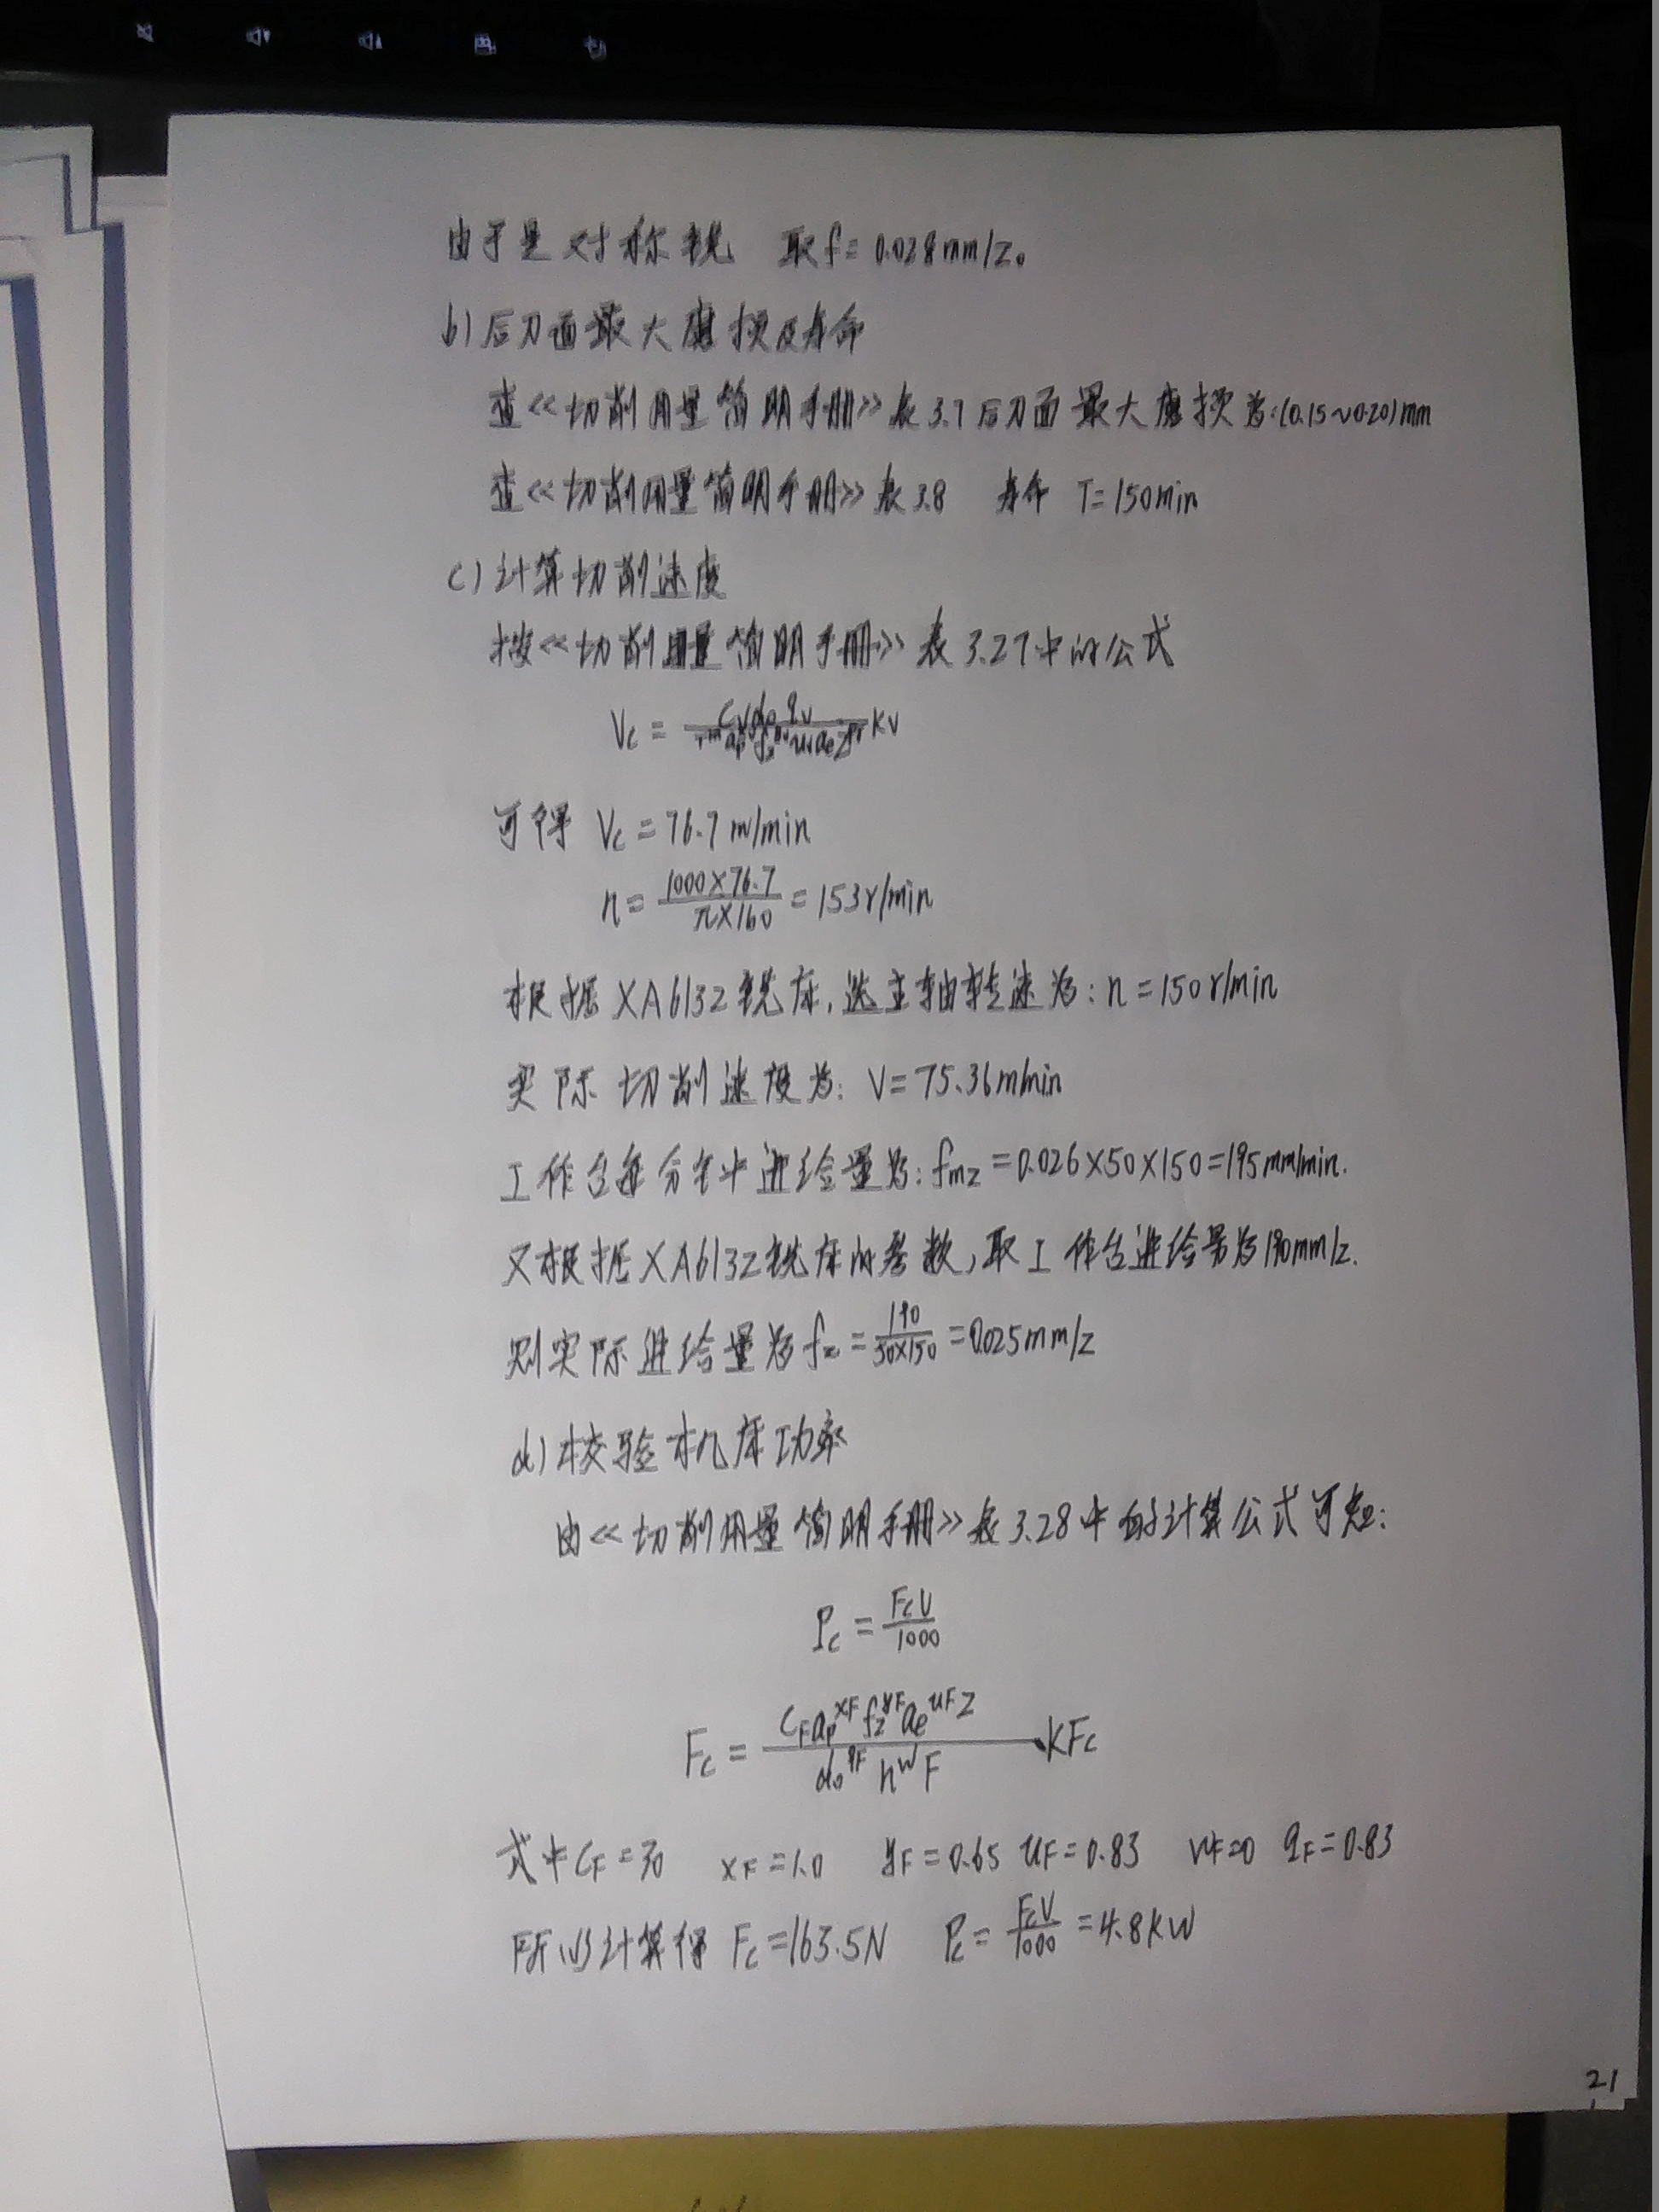 由于是对称铣 取f=0.028mm/z。
b)后刀面最大磨损及寿命
查《切削用量简明手册》表3.7后刀面最大磨损为:(0.15~0.20)mm
查《切削用量简明手册》表3.8 寿命 T=150min
c)计算切削速度
按《切削用量简明手册》表3.27中的公式
Vc=
KV
可得 Vc=76.7m/min
n=1000×76.7/π×160=153r/min
根据XA6132铣床,选主轴转速为:n=150r/min
实际切削速度为:V=75.36m/min
工作台每分钟进给量为:fmz=0.026×50×150=195mm/min.
又根据XA6132铣床的参数,取工作台进给量为190mm/z.
则实际进给量为fz=190/50×150=0.025mm/z
d)校验机床功率
由《切削用量简明手册》表3.28中的计算公式可知:
Pc=FcV/1000
Fc=CFap^xF fz^yF ae^uF Z/do^qF n^wF KFc
式中CF=30 xF=1.0 yF=0.65 uF=0.83 wF=0 qF=0.83
所以计算得 Fc=163.5N Pc=FcV/1000=4.8kW
21